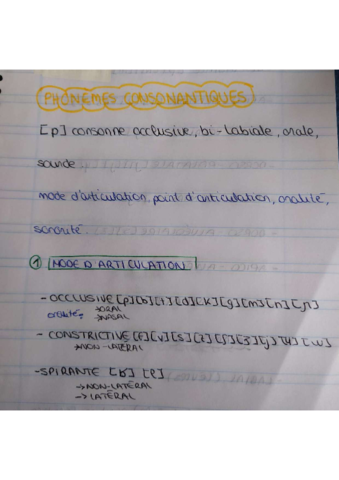 PHONÈMES CONSONANTIQUES
[p] consonne occlusive, bi-labiale, orale,
sourde
mode d'articulation, point d'articulation, oralité,
sonorité.
① MODE D'ARTICULATION
- OCCLUSIVE [p][b][t][d][k][g][m][n][ɲ]
oralité: →ORAL
→NASAL
- CONSTRICTIVE [f][v][s][z][ʃ][ʒ][j][ɥ][w]
→NON-LATÉRAL
- SPIRANTE [ʁ] [l]
→NON-LATÉRAL
→LATÉRAL